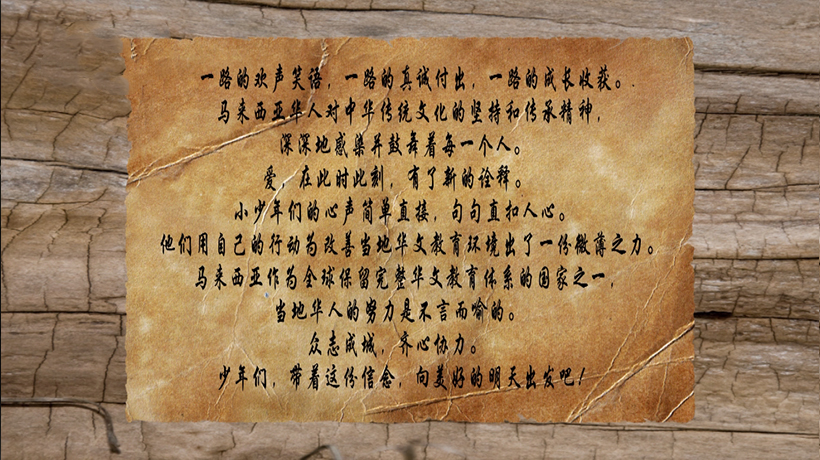 一路的欢声笑语，一路的真诚付出，一路的成长收获。.
马来西亚华人对中华传统文化的坚持和传承精神，
深深地感染并鼓舞着每一个人。
爱，在此时此刻，有了新的诠释。
小少年们的心声简单直接，句句直扣人心。
他们用自己的行动为改善当地华文教育环境出了一份微薄之力。
马来西亚作为全球保留完整华文教育体系的国家之一，
当地华人的努力是不言而喻的。
众志成城，齐心协力。
少年们，带着这份信念，向美好的明天出发吧！